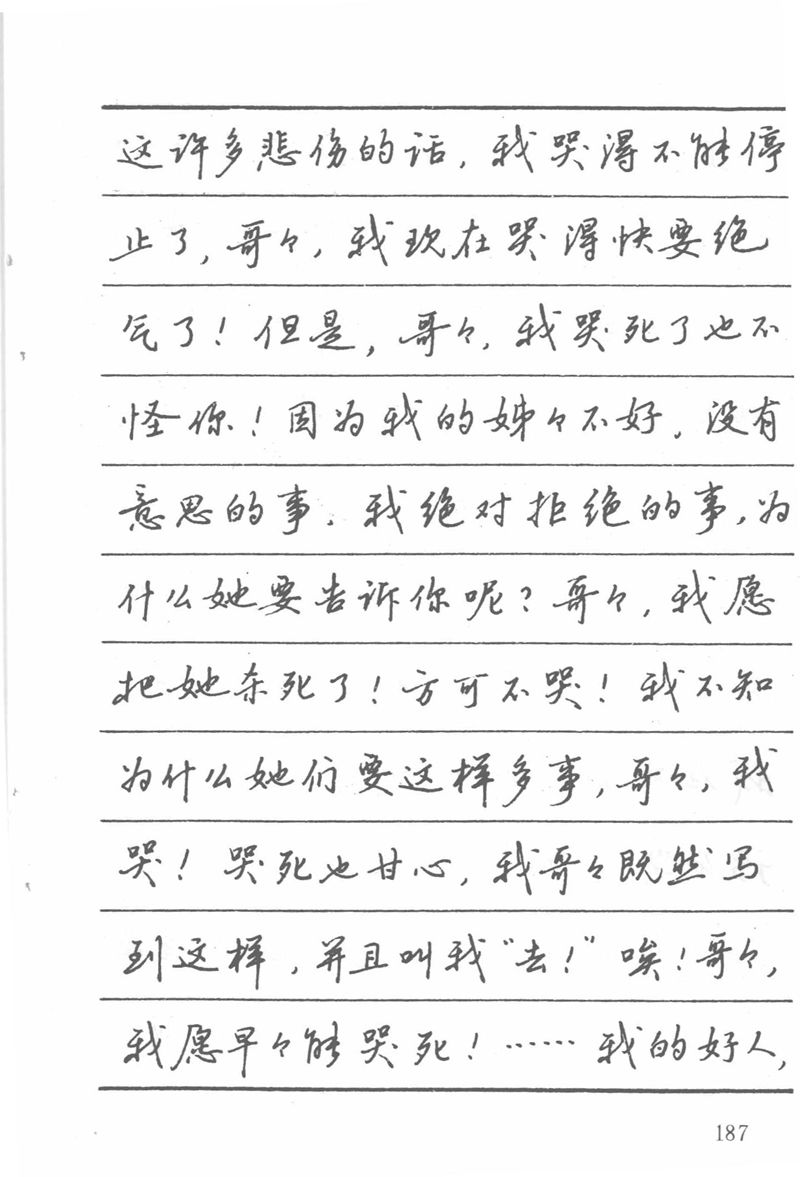 这许多悲伤的话，我哭得不能停
止了，哥々，我现在哭得快要绝
气了！但是，哥々，我哭死了也不
怪你！因为我的姊々不好，没有
意思的事，我绝对拒绝的事，为
什么她要告诉你呢？哥々，我愿
把她杀死了！方可不哭！我不知
为什么她们要这样多事，哥々，我
哭！哭死也甘心，我哥々既然写
到这样，并且叫我“去！”唉！哥々，
我愿早々能哭死！……我的好人，
187